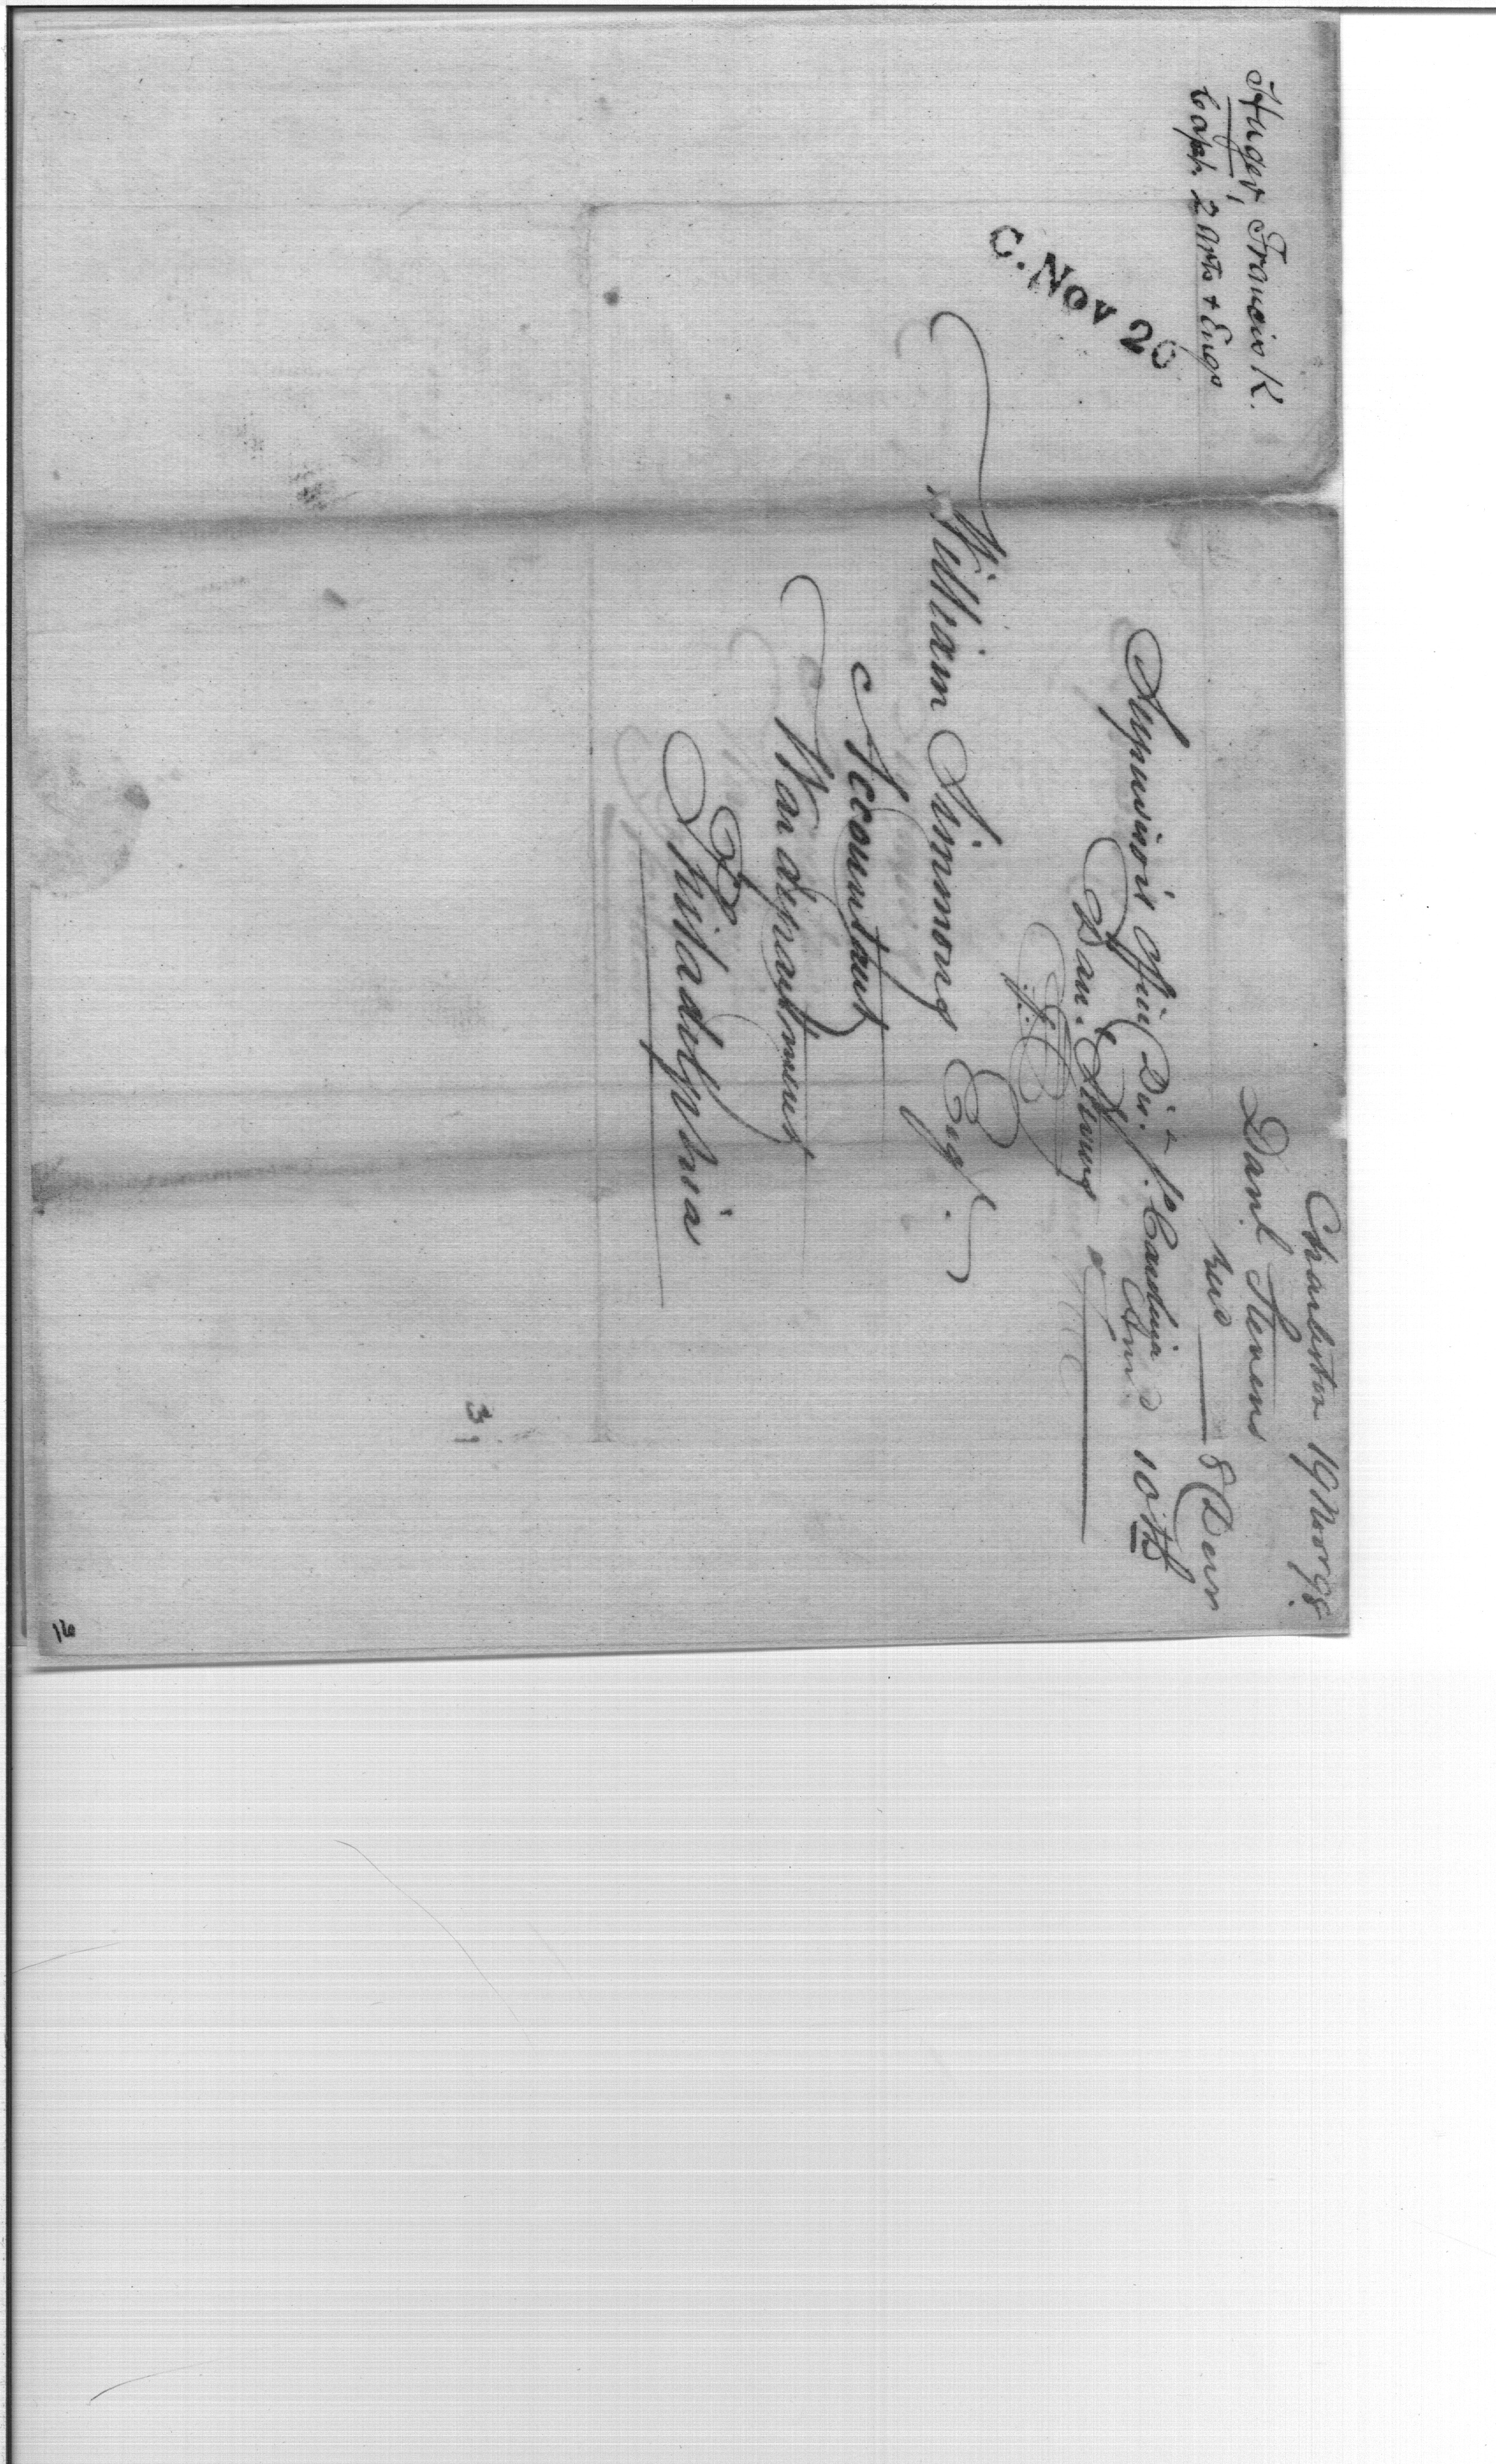 Huger, Francis K.
Capt. 2 Arts & Engs
C. Nov 20
Charleston 19 Novr 98.
Danl Stevens
recd 8 Decr
Ansd 10th
Supervisors Office Dist So. Carolina
Danl. Stevens
William Simmons Esqr.
Accountant
War department
Philadelphia
3